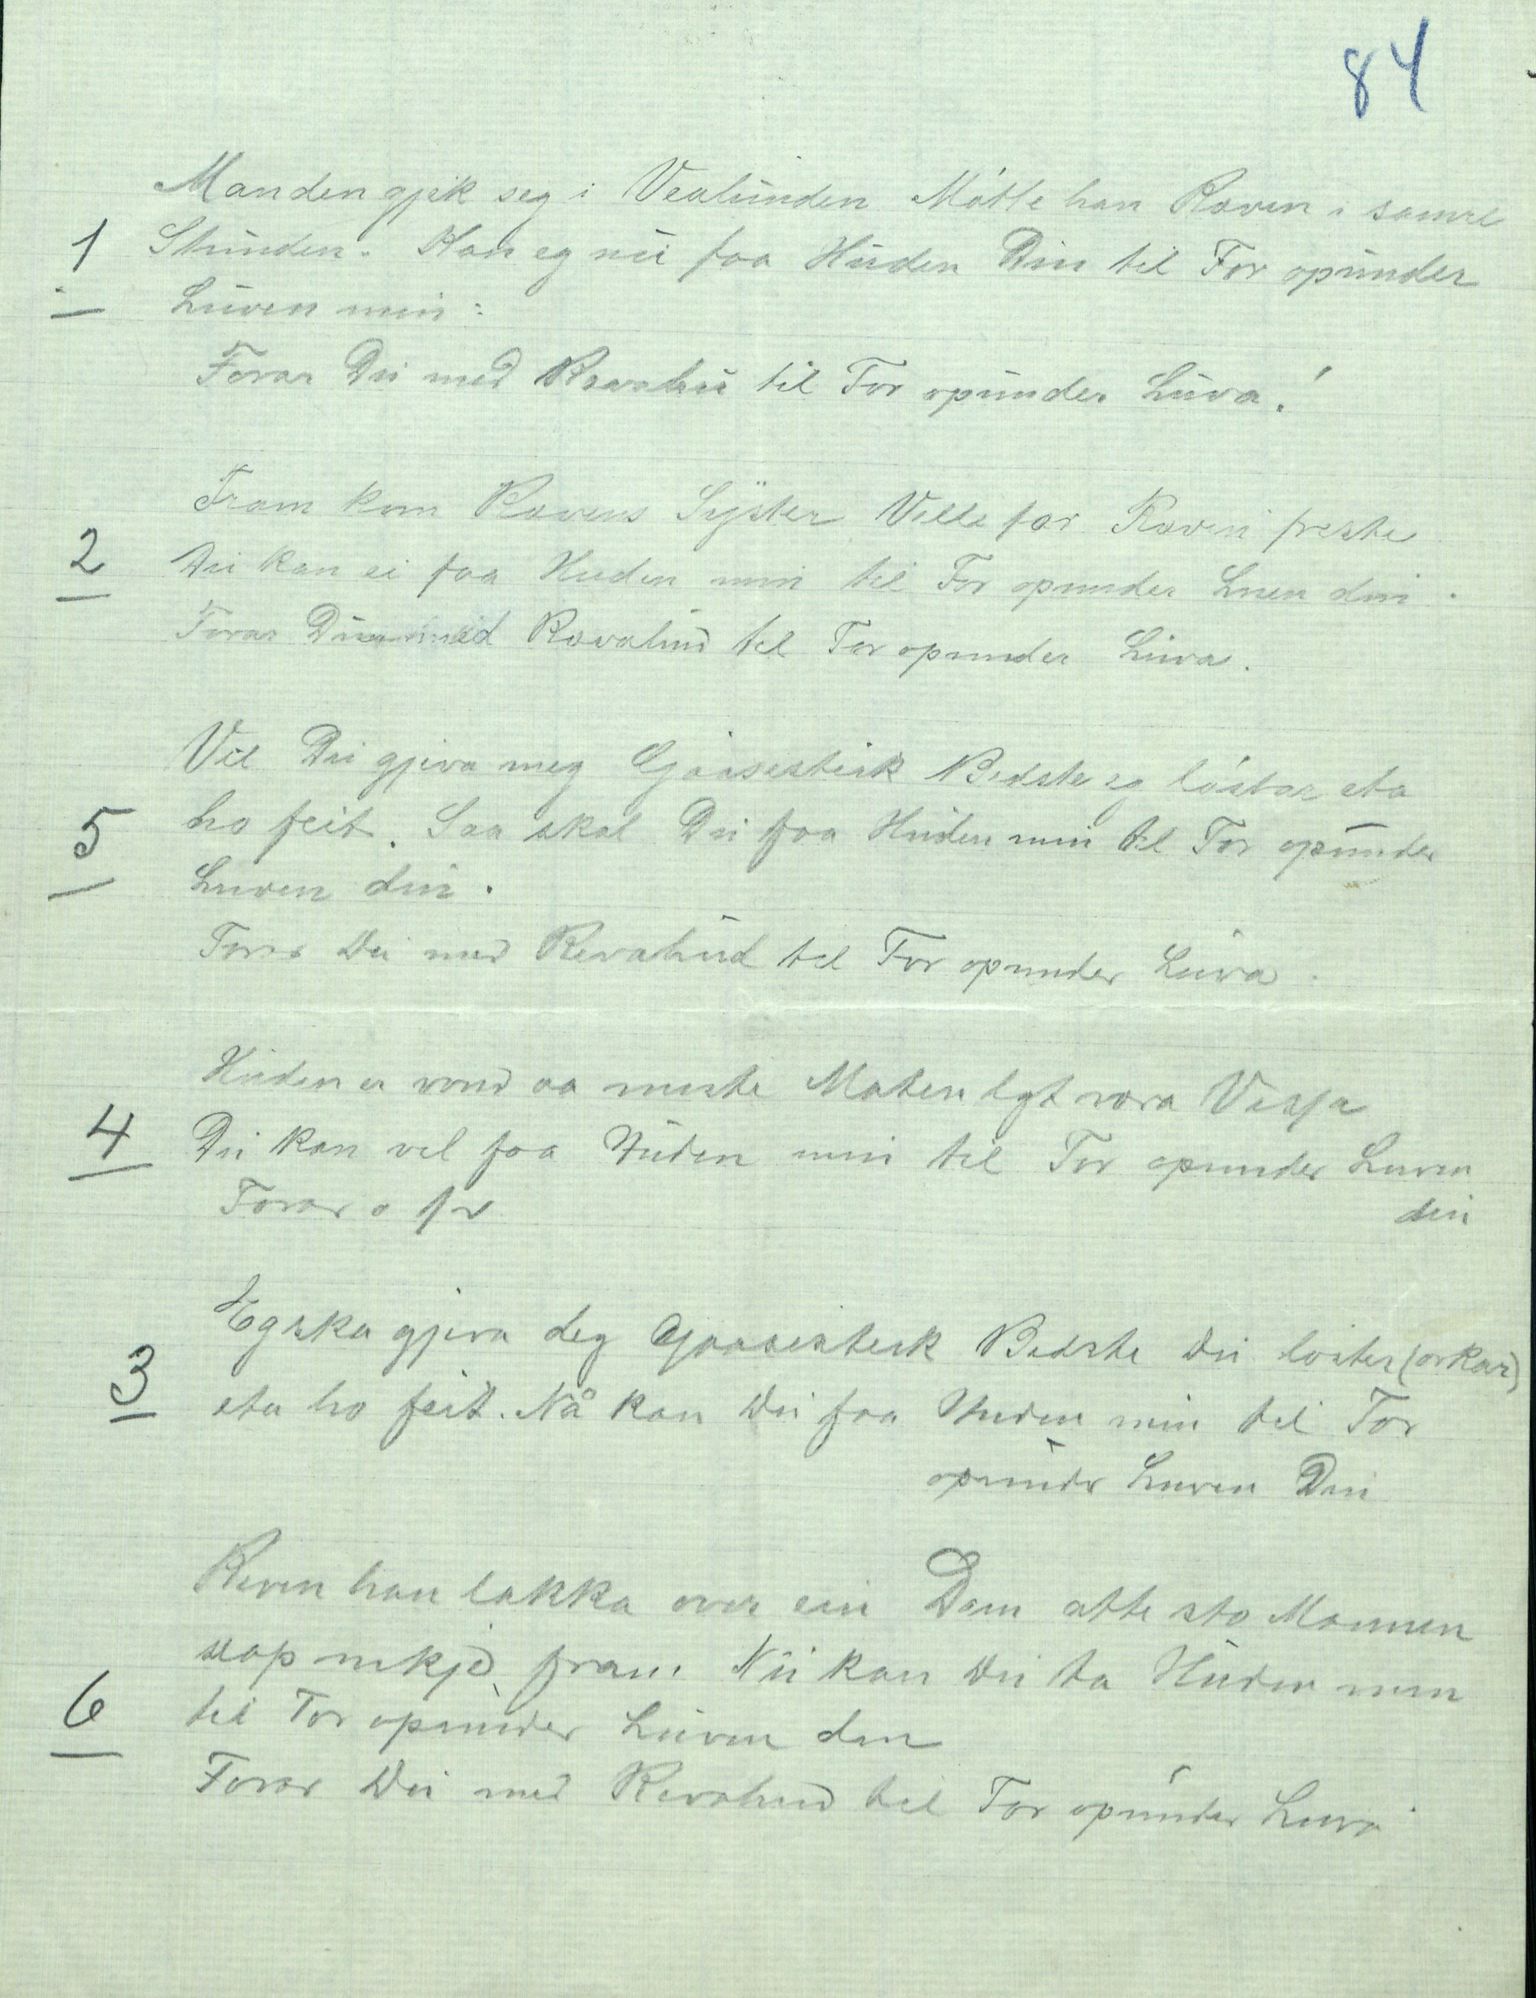 84
Manden gjik seg i Vealunden Møtte han Raven i samme
1 Stunden. Kan eg nu faa Huden Din til For opunder
Luven min:
Forar Du med Ravahu til For opunder Luva!
Fram kom Ravens Syster Ville for Raven freste
2 Du kan ei faa Huden min til For opunder Luen din.
Forar Du med Ravahud til For opunder Luva.
Vil Du gjeva meg Gaasesteik Bedste eg løstar eta
5 ho feit. Saa skal Du faa Huden min til For opunder
Luven din.
Forar Du med Revahud til For opunder Luva.
Huden er vond aa miste Maten lyt vera
4 Du kan vel faa Huden min til For opunder Luven
din
Forar o
Eg ska gjeva deg Gaasesteik Bedste Du løster (orkar)
3 eta ho feit. Nå kan Du faa Huden min til For
opunder Luven Din
Reven han lakka over ein Dam atte sto Mannen
slap nikje fram. Nu kan Du ta Huden min
6 til For opunder Luven din
Forar Du med Revahud til For opunder Luva